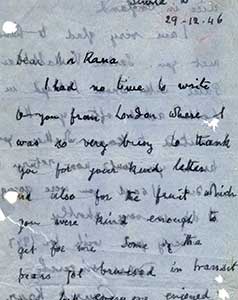 29-12-46
Rana
I had no time to write
to you from London where I
was so very busy to thank
you for your kind letter
and also for the fruit which
you were kind enough to
get for me. Some of the
pears got bruised in transit
but everyone enjoyed